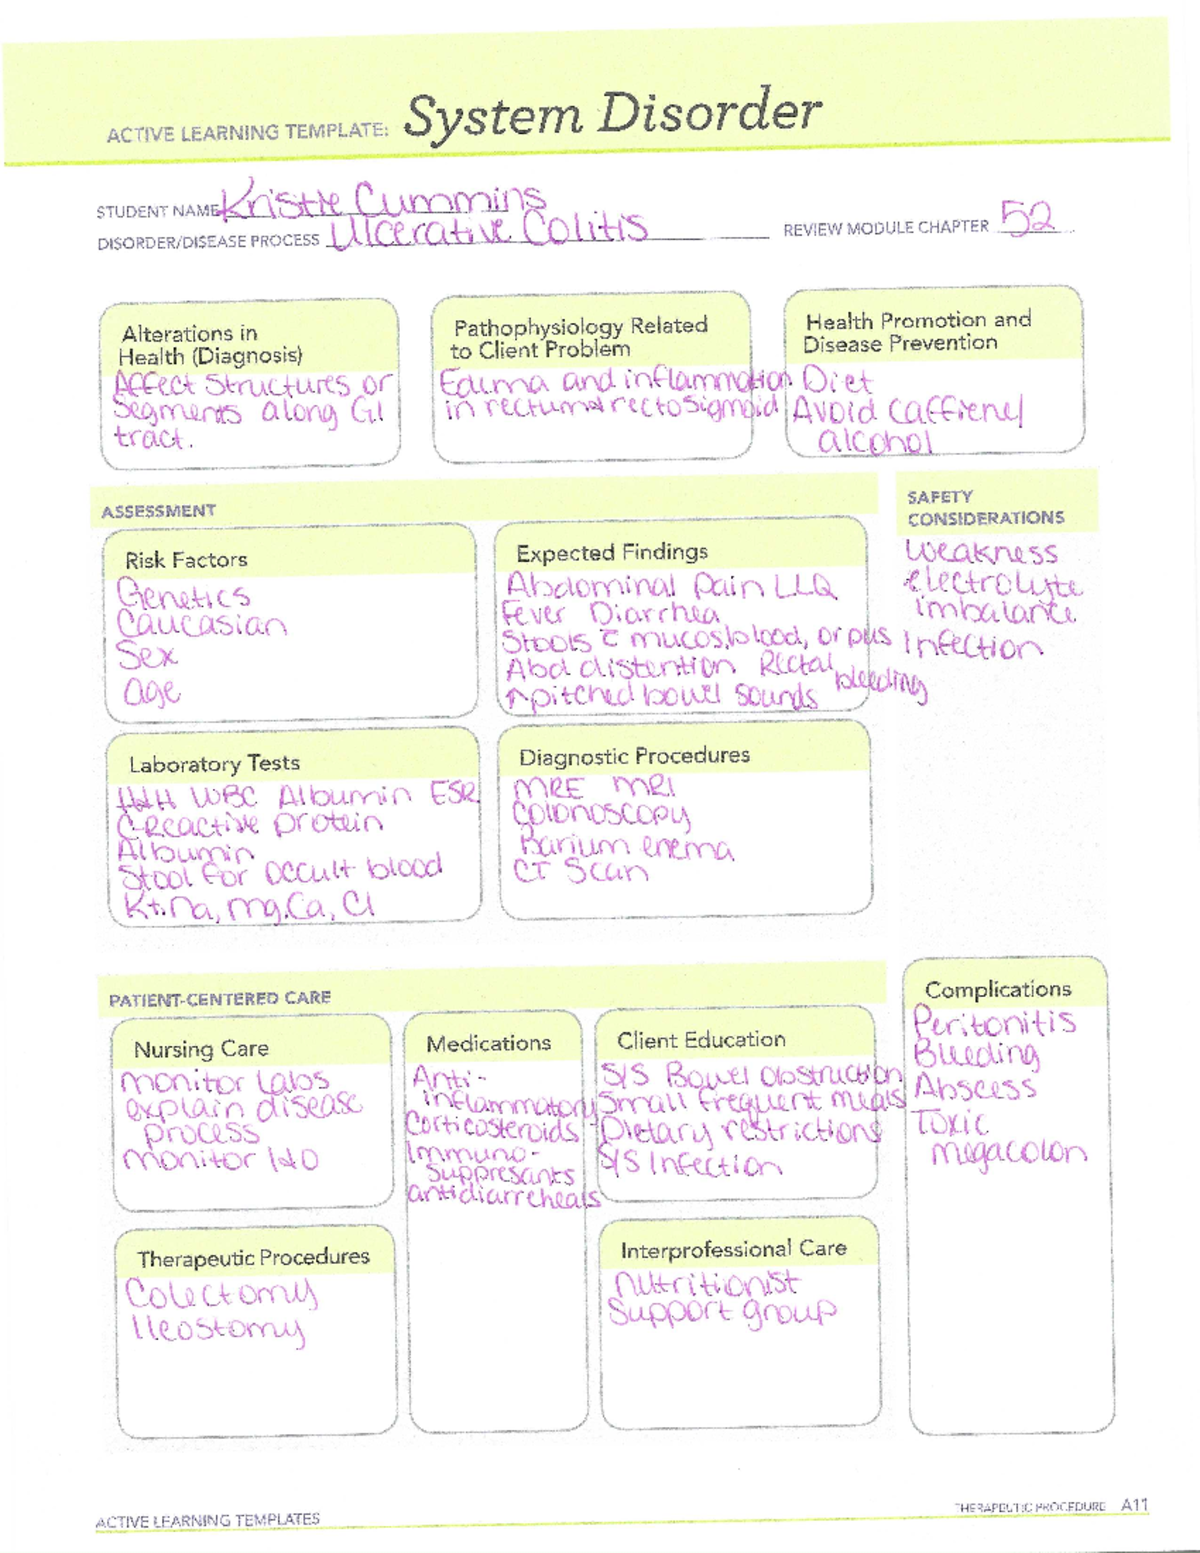 ACTIVE LEARNING TEMPLATE: System Disorder
STUDENT NAME Kristie Cummins
DISORDER/DISEASE PROCESS Ulcerative Colitis
REVIEW MODULE CHAPTER 52
Alterations in
Health (Diagnosis)
Affect Structures or
Segments along GI
tract.
Pathophysiology Related
to Client Problem
Edema and inflammation
in rectum & rectosigmoid
Health Promotion and
Disease Prevention
Diet
Avoid caffiene/
alcohol
ASSESSMENT
Risk Factors
Genetics
Caucasian
Sex
age
Expected Findings
Abdominal pain LLQ
Fever Diarrhea
Stools c̄ mucos, blood, or pus
Abd distention Rectal bleeding
↑pitched bowel sounds
SAFETY
CONSIDERATIONS
Weakness
electrolyte
imbalance
Infection
Laboratory Tests
H&H WBC Albumin ESR
C-Reactive protein
Albumin
Stool for occult blood
K+, Na, mg, Ca, Cl
Diagnostic Procedures
MRE MRI
Colonoscopy
Barium enema
CT Scan
PATIENT-CENTERED CARE
Nursing Care
monitor labs
explain disease
process
monitor I&O
Medications
Anti-
inflammatory
Corticosteroids
Immuno-
suppresants
antidiarreheals
Client Education
S/S Bowel obstruction
Small frequent meals
Dietary restrictions
S/S Infection
Complications
Peritonitis
Bleeding
Abscess
Toxic
megacolon
Therapeutic Procedures
Colectomy
Ileostomy
Interprofessional Care
nutritionist
Support group
ACTIVE LEARNING TEMPLATES
THERAPEUTIC PROCEDURE A11